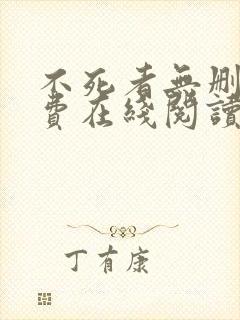 不死者無刪
費在綫閱讀
丁有康